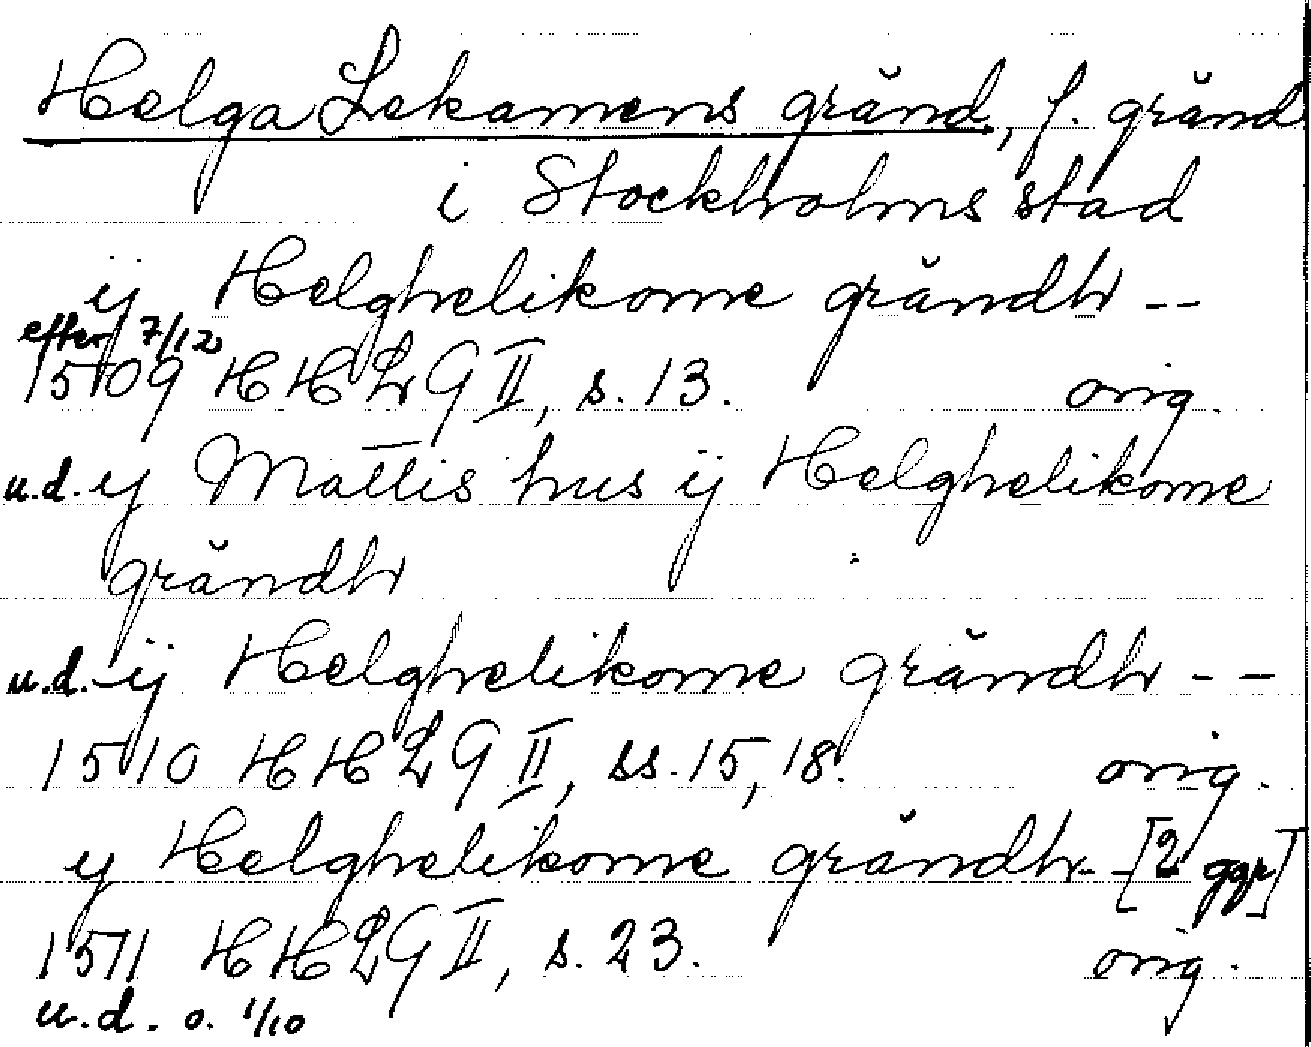 Helga Lekamens gränd, f. gränd
i Stockholms stad
ij Helghelikome grändh --
efter 7/12
1509 HHLG II, s. 13. orig.
u.d. ij Mattis hus ij Helghelikome
grändh
u.d. - ij Helghelikome grändh --
1510 HHLG II, ss. 15, 18. orig.
ij Helghelikome grändh - - [2 ggr]
1511 HHLG II, s. 23. orig.
u.d. o. 1/10